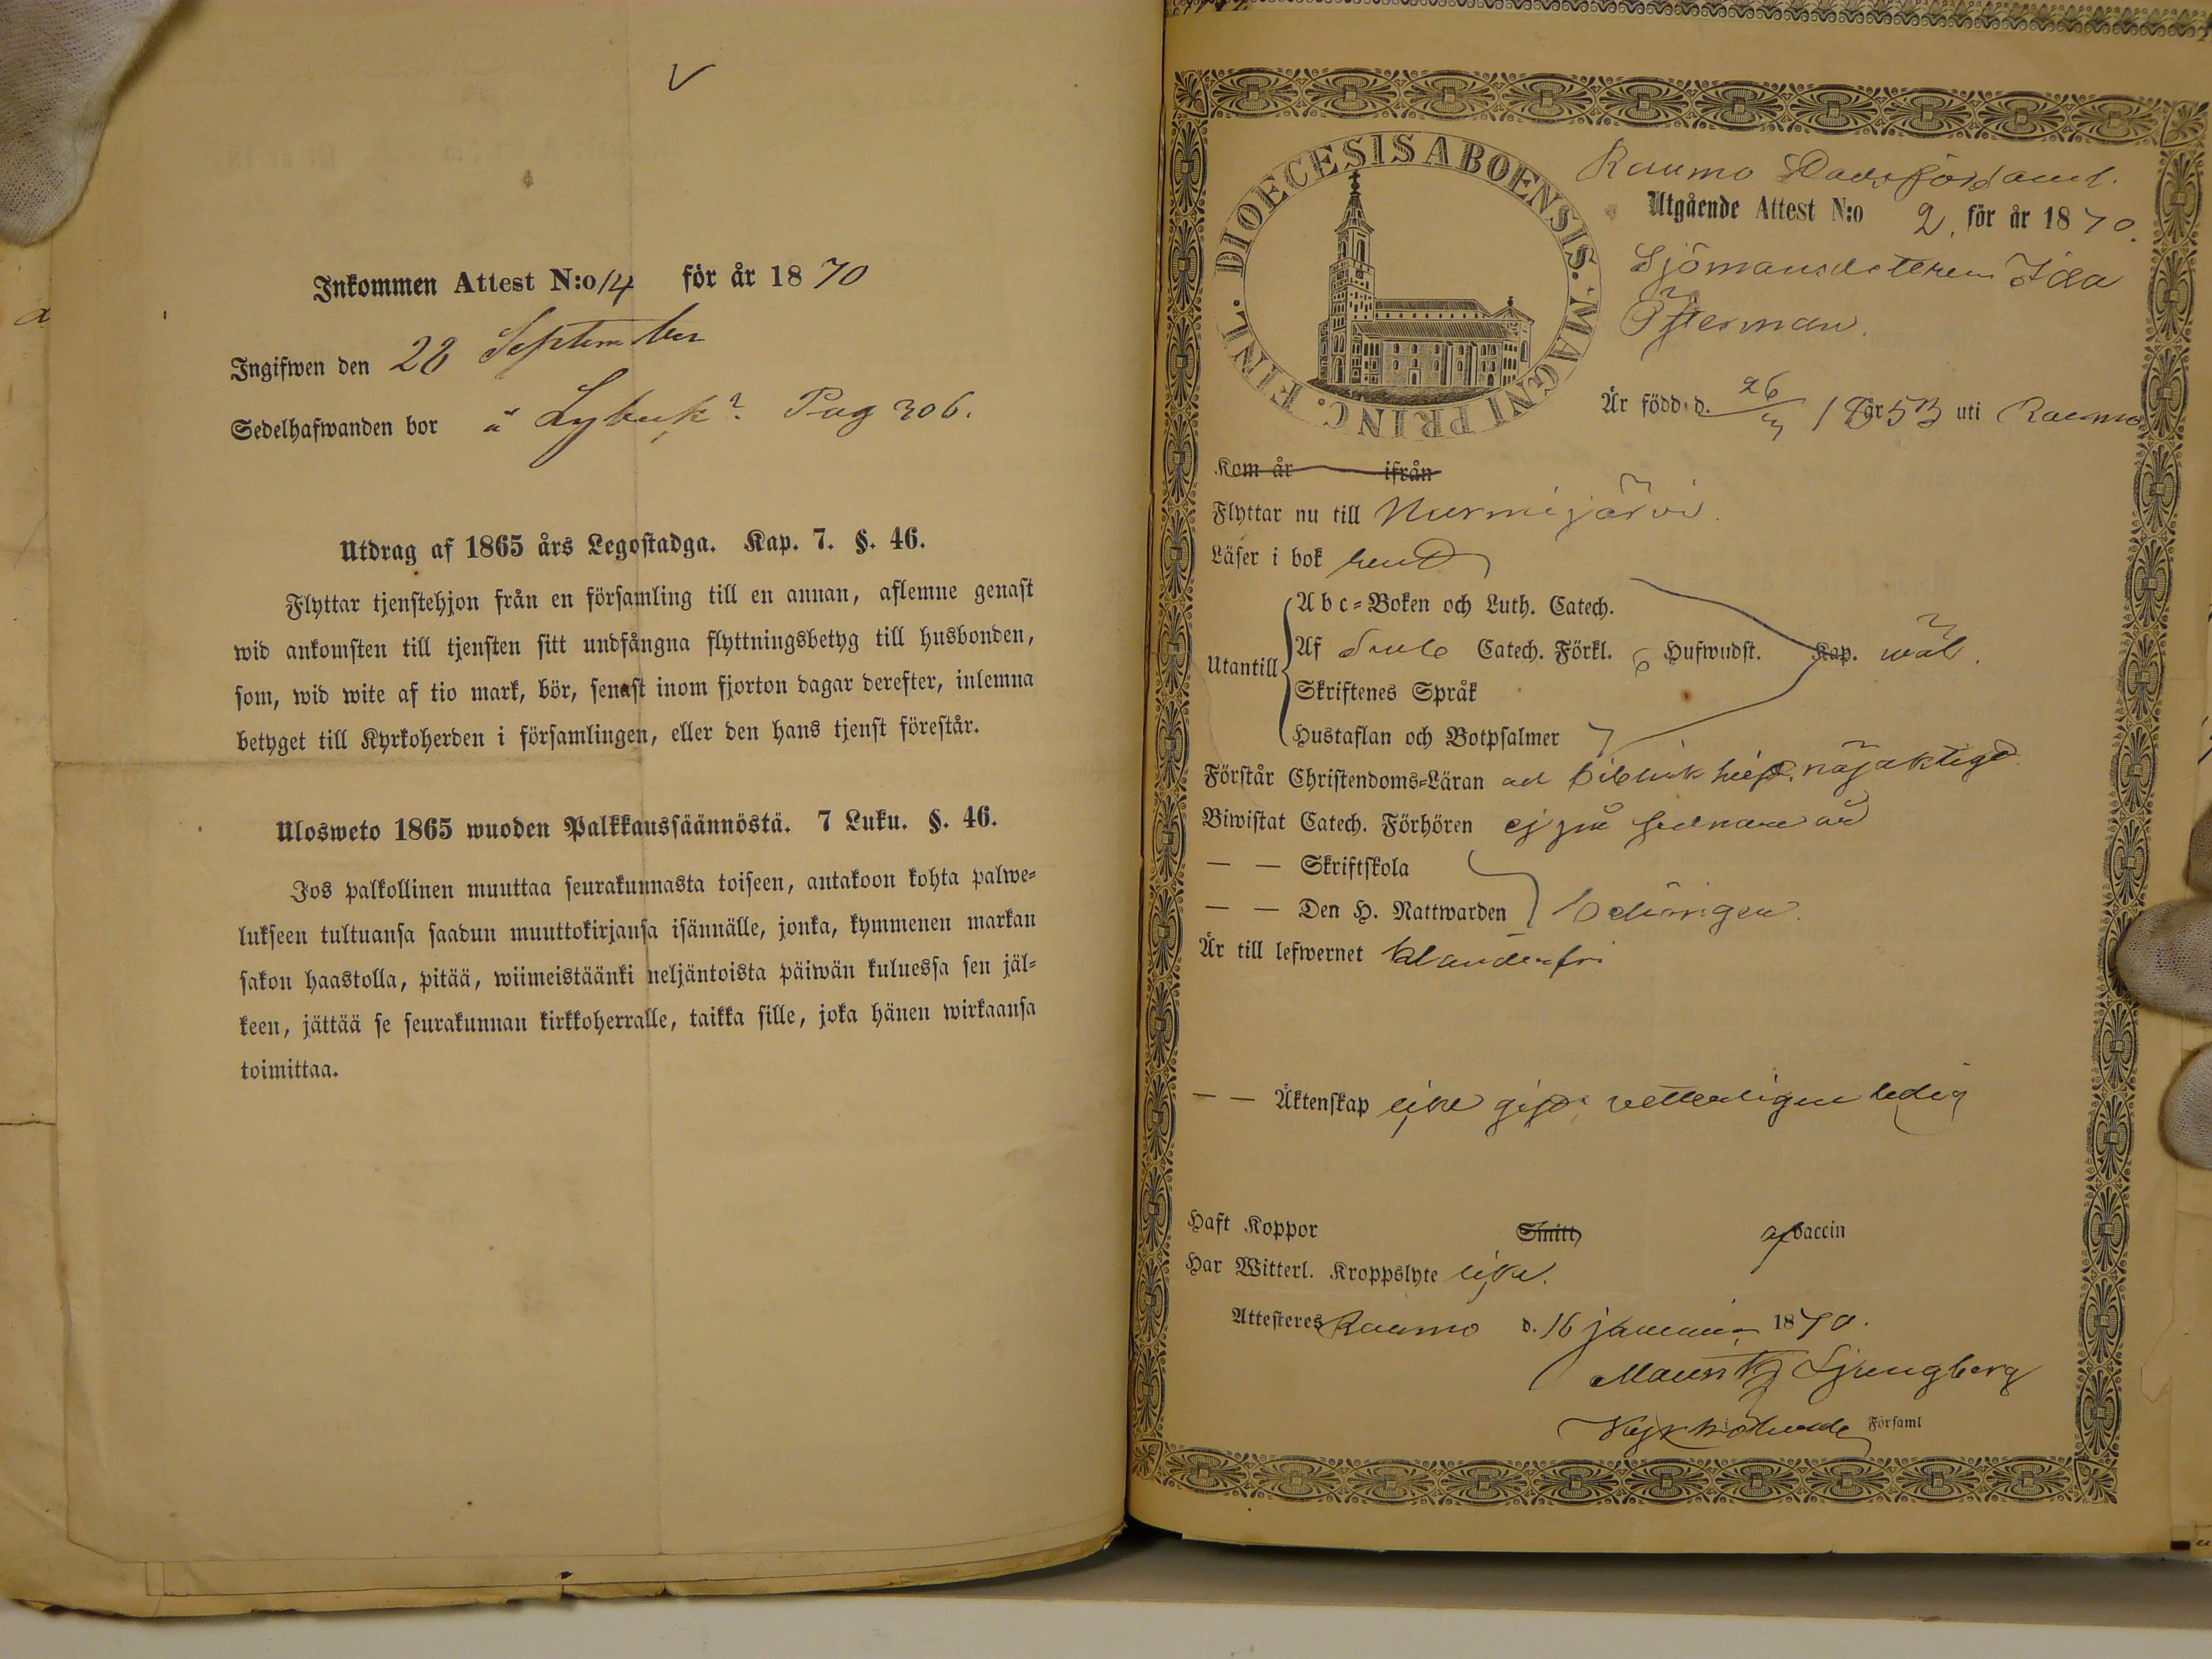 Inkommen Attest N:o 14 för år 1870
Ingifwen den 28 September
Sedelhafwanden bor å Lybeck? Pag 306.
Utdrag af 1865 års Legostadga. Kap. 7. §. 46.
Flyttar tjenstehjon från en församling till en annan, aflemne genast
wid ankomsten till tjensten sitt undfångna flyttningsbetyg till husbonden,
som, wid wite af tio mark, bör, senast inom fjorton dagar derefter, inlemna
betyget till Kyrkoherden i församlingen, eller den hans tjenst förestår.
Ulosweto 1865 wuoden Palkkaussäännöstä. 7 Luku. §. 46.
Jos palkollinen muuttaa seurakunnasta toiseen, antakoon kohta palwe=
lukseen tultuansa saadun muuttokirjansa isännälle, jonka, kymmenen markan
sakon haastolla, pitää, wiimeistäänki neljäntoista päiwän kuluessa sen jäl=
keen, jättää se seurakunnan kirkkoherralle, taikka sille, joka hänen wirkaansa
toimittaa.
DIOECESIS ABOENSIS. MAGNI PRINC. FINL.
Raumo Stadsförsaml.
Utgående Attest N:o 2. för år 1870.
Sjömansdottren Ida
Österman.
Är född d. 26/3 1853 uti Raumo
Kom år ifrån
Flyttar nu till Nurmijärvi.
Läser i bok rent
Abc=Boken och Luth. Catech.
Utantill Af Catech. Förkl. 6 Hufwudst. Kap. wäl.
Skriftenes Språk
Hustaflan och Botpsalmer
Förstår Christendoms=Läran och biblisk hist. nöjaktigt
Biwistat Catech. Förhören ej på sednare år
— — Skriftskola
— — Den H. Nattwarden behörigen.
Är till lefwernet klanderfri
— — Äktenskap icke gift, vetterligen ledig
Haft Koppor Smitt af vaccin
Har Witterl. Kroppslyte icke.
Attesteres Raumo d. 16 januari 1870.
Mauritz Ljungberg
Kyrkoherde Församl